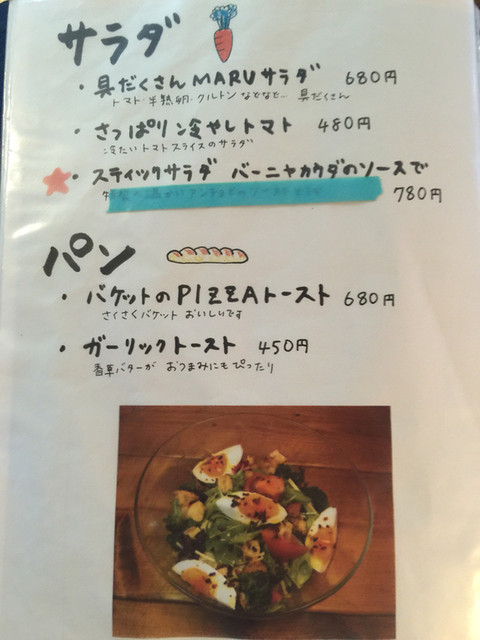 サラダ
・具だくさんMARUサラダ 680円
トマト・半熟卵・クルトンなどなど… 具だくさん
・さっぱり冷やしトマト 480円
冷たいトマトスライスのサラダ
・スティックサラダ バーニャカウダのソースで
780円
パン
・バゲットのPIZZAトースト 680円
さくさくバゲット おいしいです
・ガーリックトースト 450円
香草バターが おつまみにもぴったり